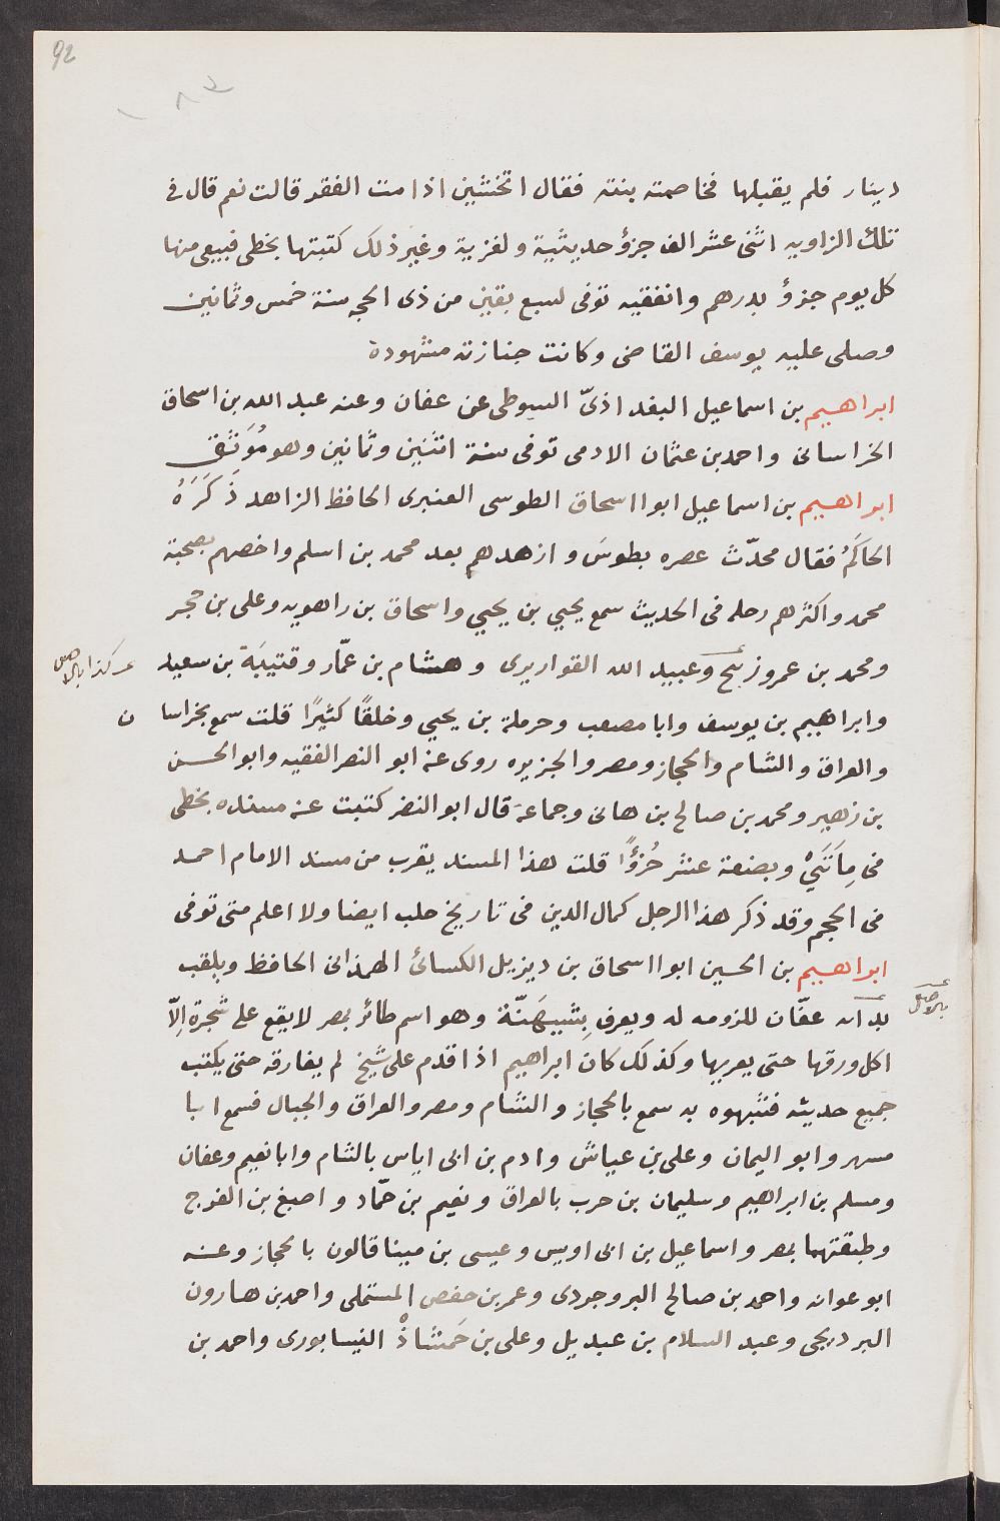 92
دينار فلم يقبلها فخاصمته بنته فقال اتخشين اذا مت الفقر قالت نعم قال فى
تلك الزاويه اثنى عشر الف جزؤ حديثية ولغزية وغير ذلك كتبتها بخطى فبيعى منها
كل يوم جزؤ بدرهم وانفقيه توفى لسبع بقين من ذى الحجه سنة خمس وثمانين
وصلى عليه يوسف القاضى وكانت جنازته مشهودة
ابراهيم بن اسماعيل البغداذىّ السوطى عن عفان وعنه عبد الله بن اسحاق
الخراسانى واحمد بن عثمان الادمى توفى سنة اثنين وثمانين وهو مُوَثَّق
ابراهيم بن اسماعيل ابو اسحاق الطوسى العنبرى الحافظ الزاهد ذَكَرَهُ
الحاكَمُ فقال محدّث عصره بطوسَ وازهدهم بعد محمد بن اسلم واخصهم بصحبة
محمد واكثرهم رحله فى الحديث سمع يحيي بن يحيي واسحاق بن راهويه وعلى بن حجر
ومحمد بن عمرو زنيج وعبيد الله القواريرى وهشام بن عمّار وقتيبَة بن سعيد
كذا بالاصل
وابراهيم بن يوسف وابا مصعب وحرملة بن يحيي وخلقًا كثيرًا قلت سمع بخراسا ن
والعراق والشام والحجاز ومصر والجزيره روى عنه ابو النصر الفقيه وابو الحسن
بن زهير ومحمد بن صالح بن هانى وجماعة قال ابو النضر كتبت عنه مسنده بخطى
فى مِاَتَىْ وبضعة عشر جُزؤًا قلت هذا المسند يقرب من مسند الامام احمد
فى الحجم وقد ذكر هذا الرجل كمال الدين فى تاريخ حلب ايضا ولا اعلم متى توفى
ابراهيم بن الحسين ابو اسحاق بن ديزيل الكسائى الهمذانى الحافظ ويلقب
بالاصل
بداٮه عفّان للزومه له ويعرف بِشَيبهَنّة وهو اسم طائر بمصر لا يقع على شجرة اِلّا
اكل ورقها حتى يعريها وكذلك كان ابراهيم اذا قدم على شيخ لم يفارقه حتى يكتب
جميع حديثه فشبهوه به سمع بالحجاز والشام ومصر والعراق والجبال فسمع ابا
مسهر وابو اليمان وعلى بن عياش وادم بن ابى اياس بالشام وابا نعيم وعفان
ومسلم بن ابراهيم وسليمان بن حرب بالعراق ونعيم بن حمّاد واصبغ بن الفرج
وطبقتهما بمصر واسماعيل بن ابى اويس وعيسى بن مينا قالون بالحجاز وعنه
ابو عوانه واحمد بن صالح البروجردى وعمر بن حفص المستملى واحمد بن هارون
البرديجى وعبد السلام بن عبديل وعلى بن حَمشاذْ النيسابورى واحمد بن